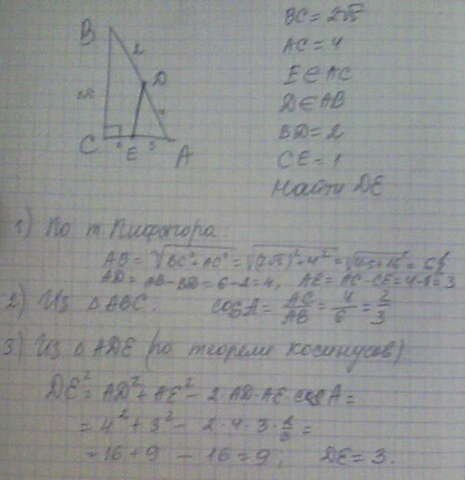 B
2
D
2√5
4
C
1
E
3
A
BC = 2√5
AC = 4
E∈AC
D∈AB
BD = 2
CE = 1
Найти DE
1) По т. Пифагора:
AB = √BC²+AC² = √(2√5)²+4² = √4·5+16 = 6
AD = AB-BD = 6-2 = 4, AE = AC-CE = 4-1 = 3
2) Из △ABC. cosA = AC/AB = 4/6 = 2/3
3) Из △ADE (по теореме косинусов)
DE² = AD² + AE² - 2 AD·AE cosA =
= 4² + 3² - 2·4·3·2/3 =
= 16 + 9 - 16 = 9; DE = 3.